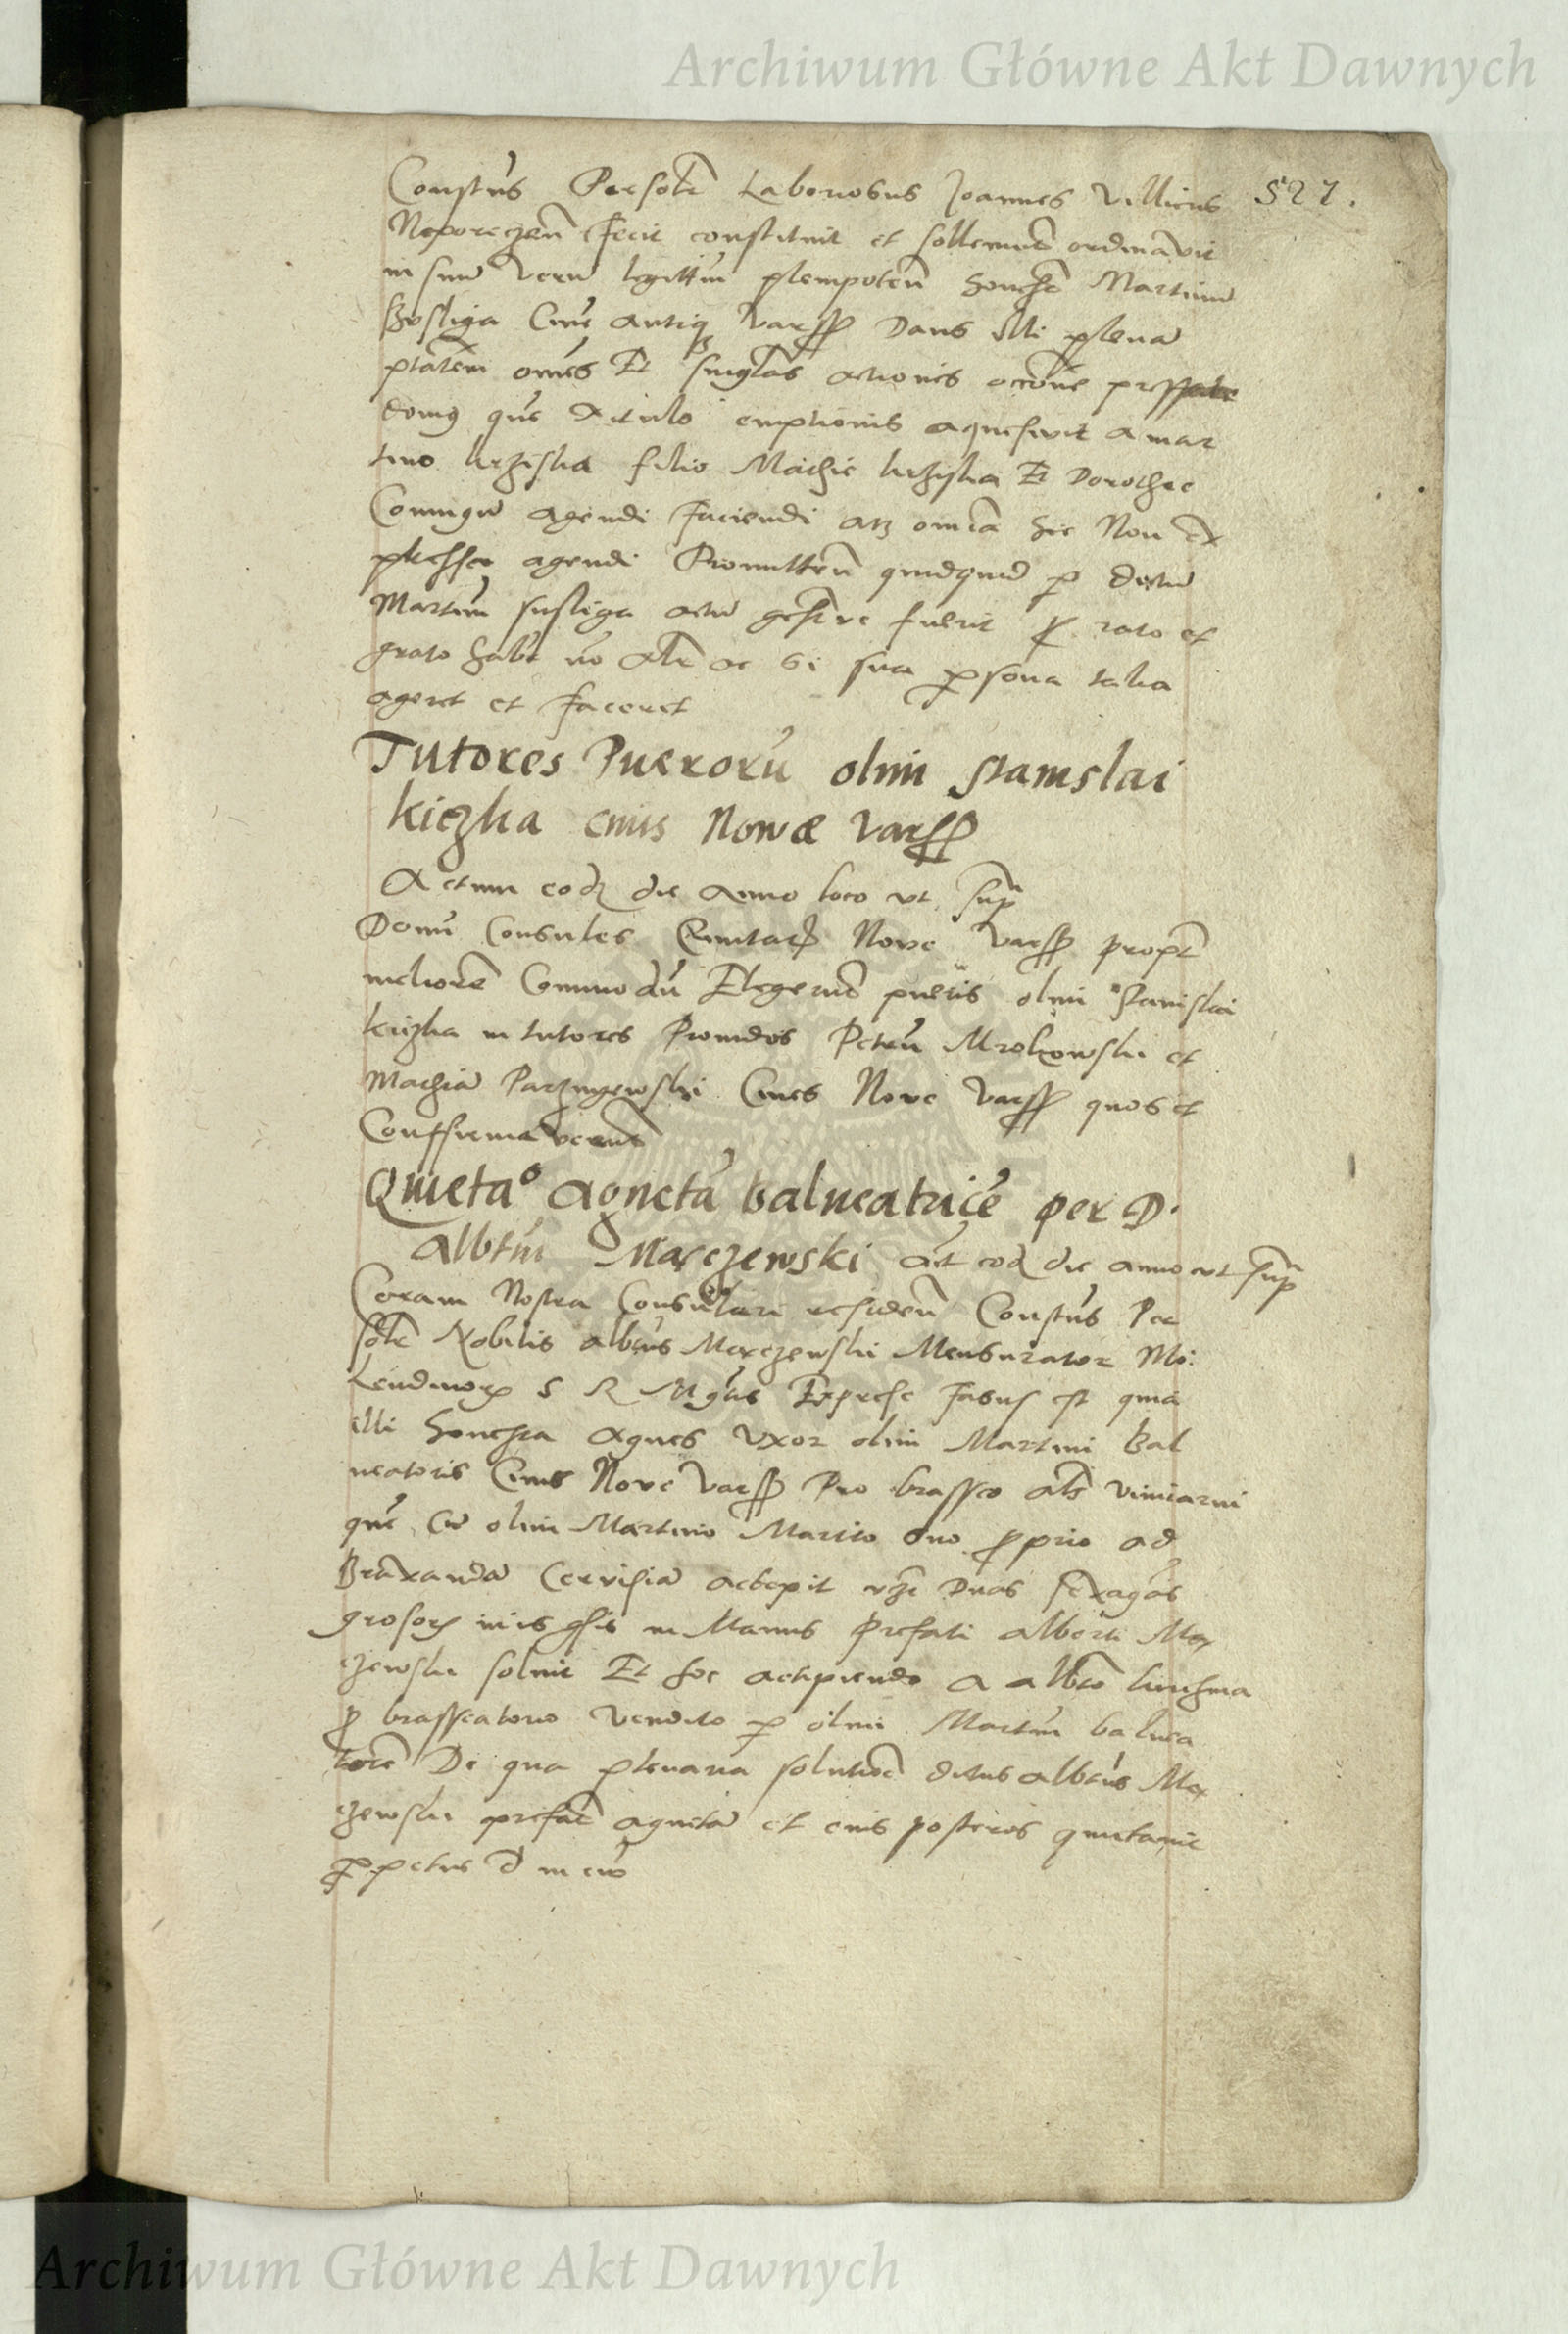 Archiwum Główne Akt Dawnych
527.
Constus Personlr Laboriosus Joannes Villicus
Neporezen fecit constituit et sollemnr ordinavit
in suu veru legittim plenipoten honestu Martinu
Susliga Cive antiq Varss Dans illi plena
ptatem omes Et singlas actiones occone
domg que titulo emptionis aquesivit a mar
tino krziska filio Mathie krziska Et Dorothee
Coniugu agendi faciendi atz omia hic Non ex
plessa agendi Promitten quidquid p dictu
Martin susliga actu gestve fuerit p rato et
grato habe no alr ac si sua psona talia
ageret et faceret
Tutores Pueroru olim stanislai
kiczka civis Novæ Varss
Actum eod die anno loco ut sup
Domi Consules Civitatis Nove Varss propt
meliore Commodu Elegerunt pueris olim Stanislai
kiczka in tutores Providos Petru Mrokowski et
Mathia Parznyewski Cives Nove Varss quos et
Conffirmaverunt
Quietao Agneta balneatrice per D.
Albtum Marczewski act eod die anno ut sup
Coram Nostra Consulari residen Constus Per
solr Nobilis albtus Marczewski Mensurator Mo:
lendinor S R M gtis Expresse fasus est quia
illi honesta Agnes Uxor olim Martini Bal
neatoris Civis Nove Varss Pro brasseo als
que cu olim Martino Marito suo pprio ad
Braxanda Cervisia accepit Duas sexagas
grosor in is gsis in Manus prefati alberti Mar
czewski solvit Et hoc accipiendo a albto
p brasseatorio vendito p olim Martin balnea
tore De qua plenaria solutioe dictus albtus Mar
czewski prefat agneta et eius posteros quietavit
ppetue D in evo
Archiwum Główne Akt Dawnych